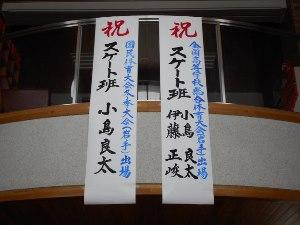 祝
全国高等学校総合体育大会(岩手)出場
スケート班 小島 良太
伊藤 正峻
祝
国民体育大会冬季大会(岩手)出場
スケート班 小島 良太